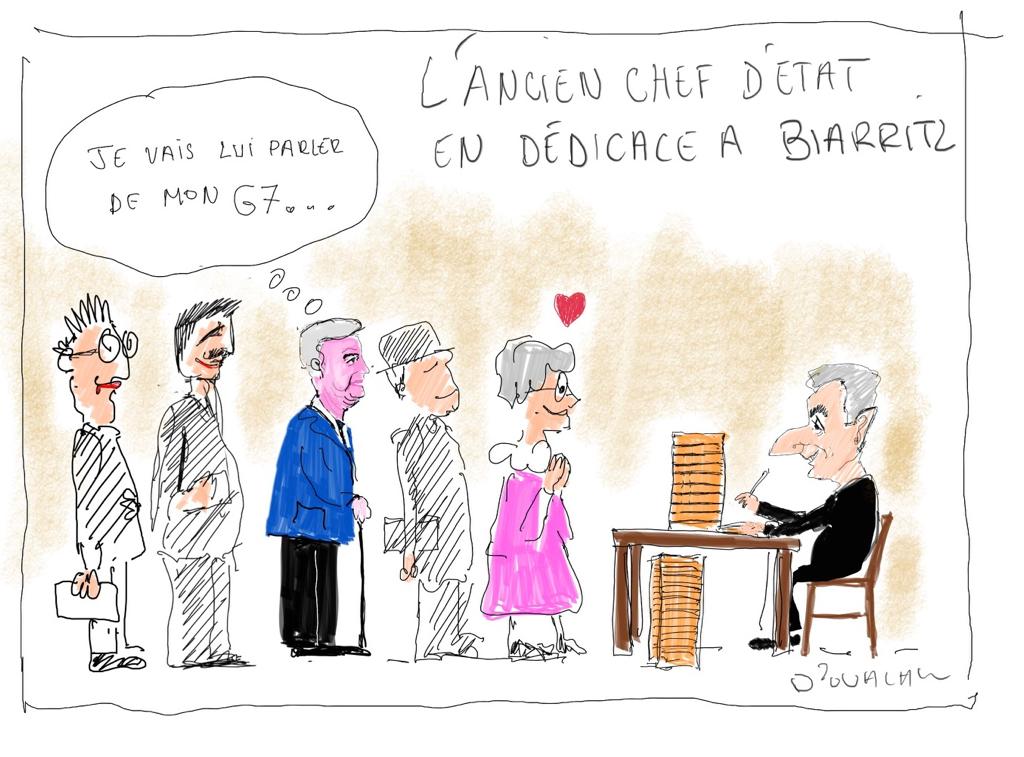 L'ANCIEN CHEF D'ÉTAT
EN DÉDICACE A BIARRITZ
JE VAIS LUI PARLER
DE MON G7....